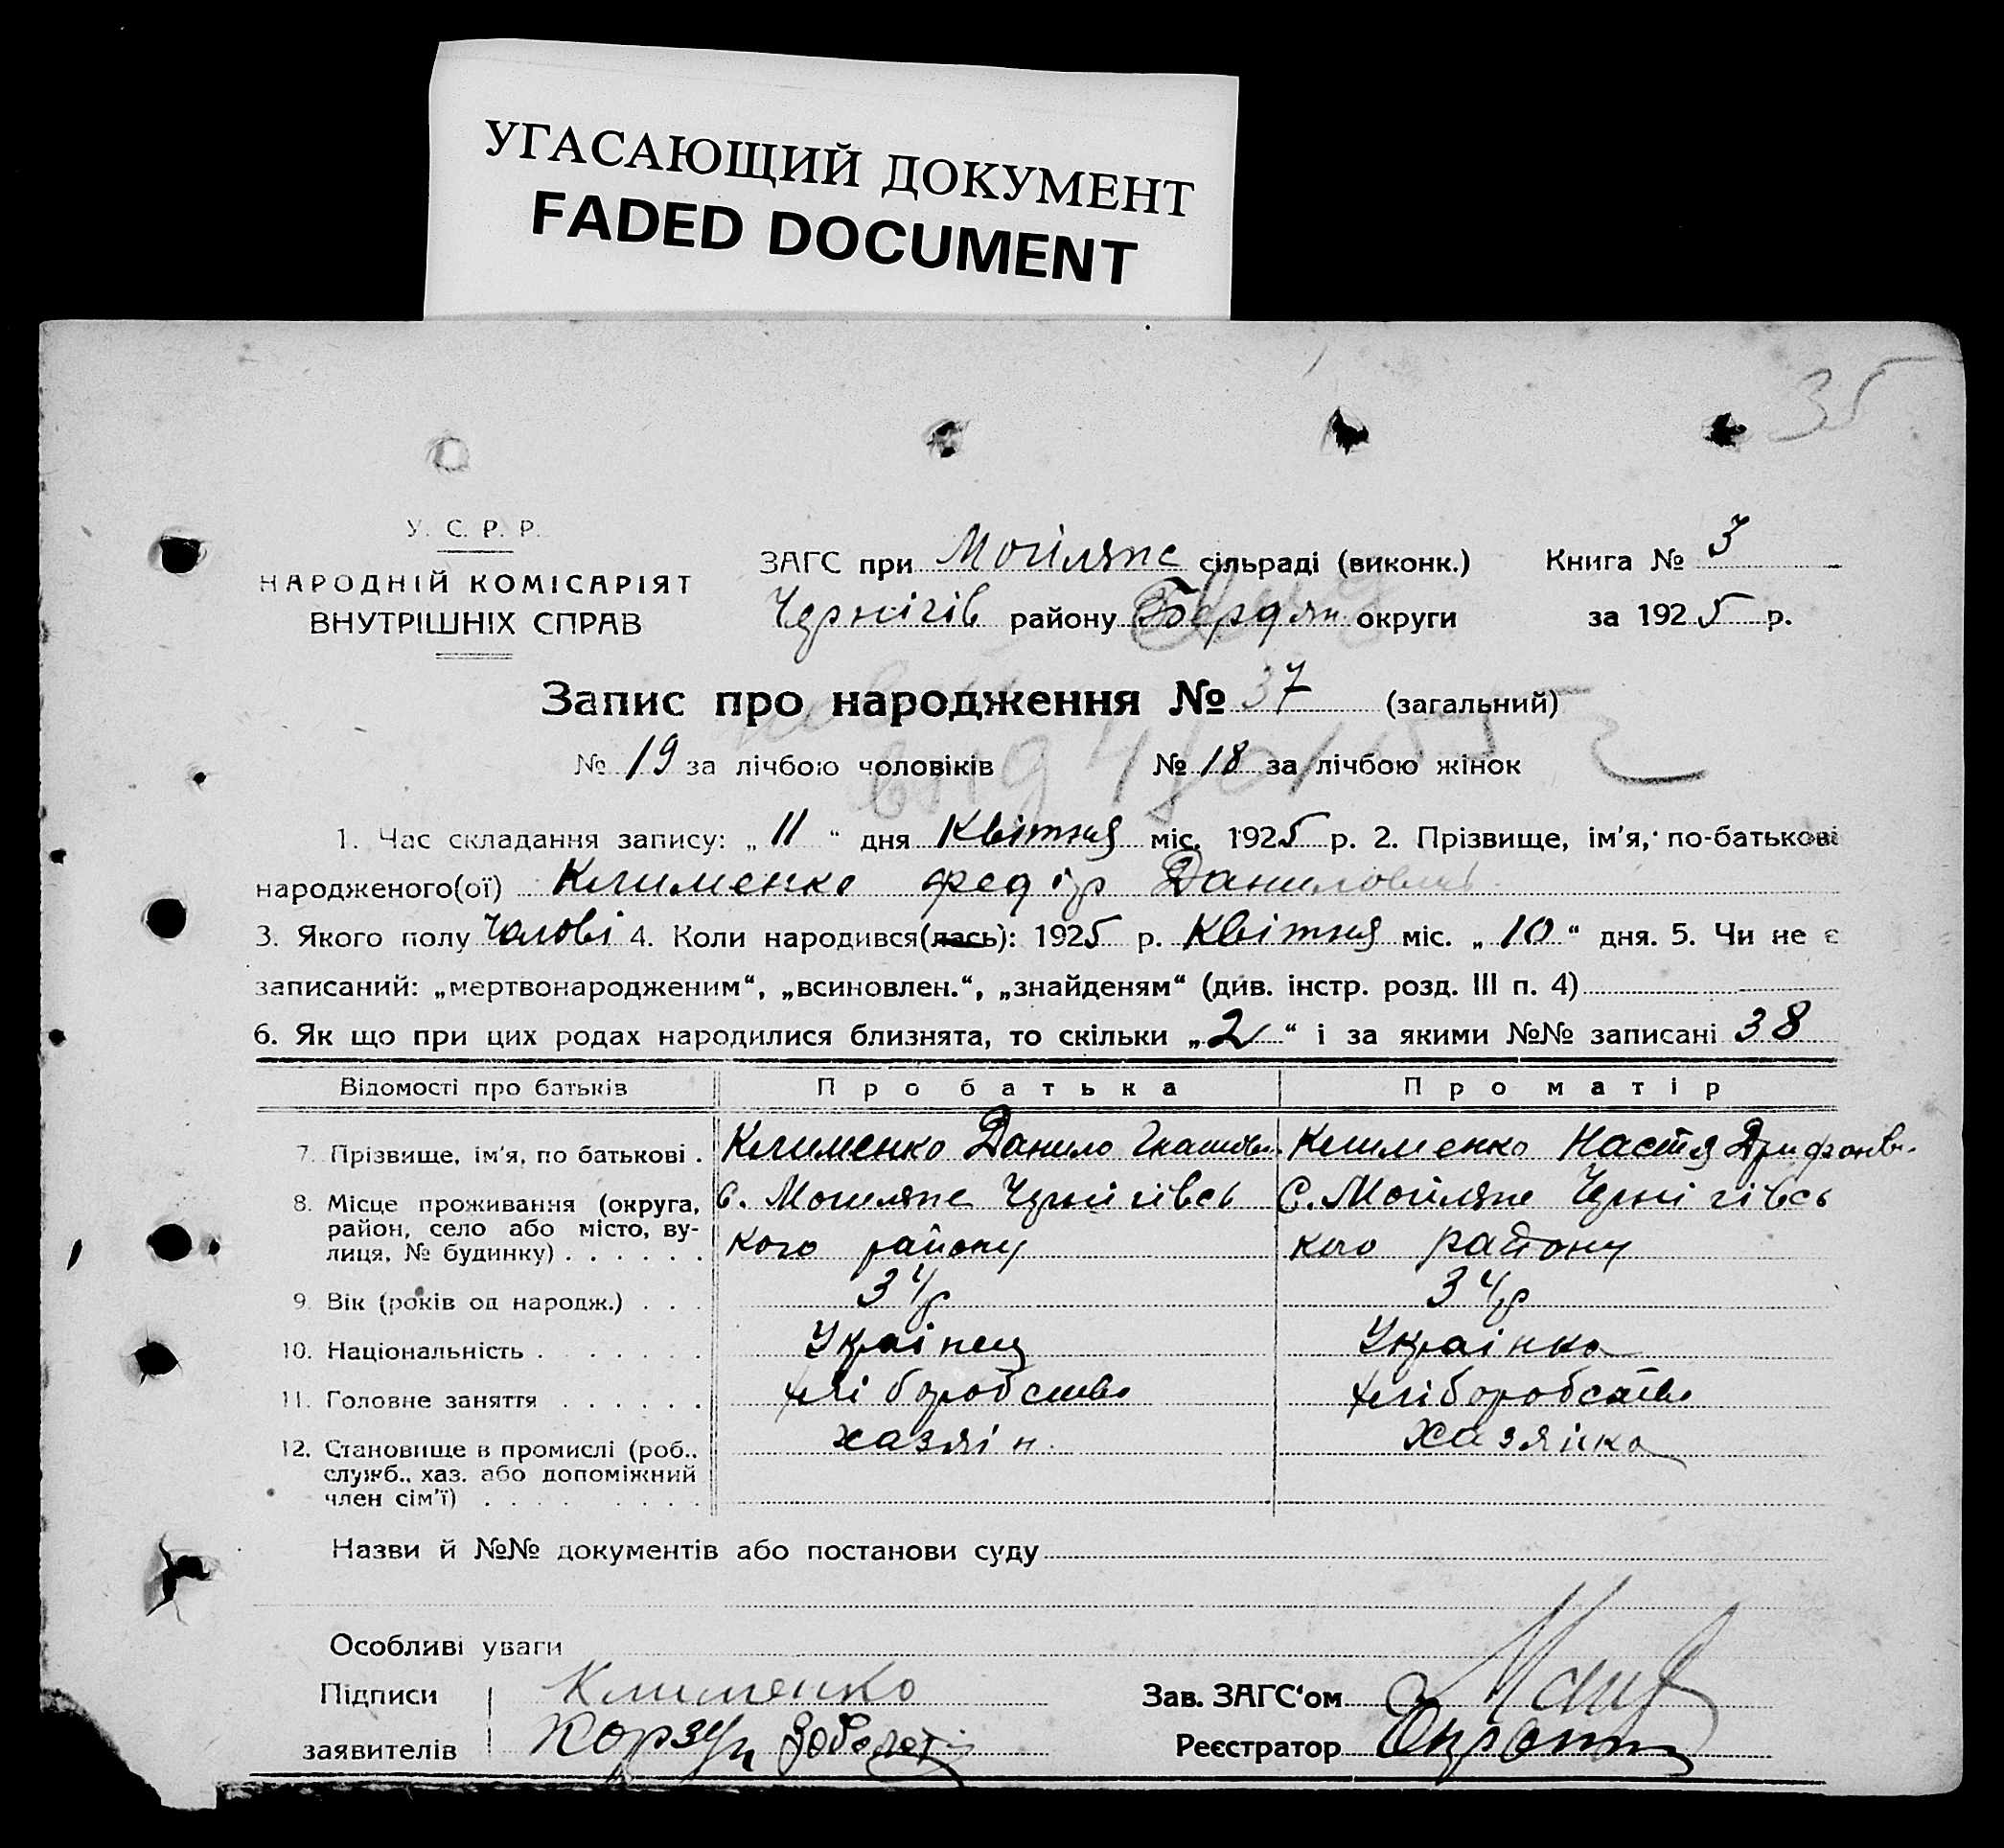 УГАСАЮЩИЙ ДОКУМЕНТ
FADED DOCUMENT
35
У. С. Р. Р.
НАРОДНІЙ КОМІСАРІЯТ
ВНУТРІШНІХ СПРАВ
ЗАГС при Могиляне сільраді (виконк.) Книга № 3
Чернігів району Бердян округи за 1925 р.
Запис про народження № 37 (загальний)
№ 19 за лічбою чоловіків № 18 за лічбою жінок
1. Час складання запису: „11“ дня Квітня міс. 1925 р. 2. Прізвище, ім'я, по-батькові
народженого(ої) Клименко Федір Данилович
3. Якого полу Чолові 4. Коли народився(лась): 1925 р. Квітня міс. „10“ дня. 5. Чи не є
записаний: „мертвонародженим“, „всиновлен.“, „знайденям“ (див. інстр. розд. III п. 4)
6. Як що при цих родах народилися близнята, то скільки „2“ і за якими №№ записані 38
Відомості про батьків Про батька Про матір
7. Прізвище, ім'я, по батькові . Клименко Данило Клименко Настя
8. Місце проживання (округа, район, село або місто, вулиця, № будинку) . . . . . .
с. Могиляне Чернігівсь С. Могиляне Чернігівсь
кого району кого району
9. Вік (років од народж.) . . . 34 р 34 р
10. Національність . . . . . . . Українец Українка
11. Головне заняття . . . . . . хліборобство хліборобство
12. Становище в промислі (роб., служб., хаз. або допоміжний член сім'ї) . . . . . . . . .
хазяін Хазяйка
Назви й №№ документів або постанови суду
Особливі уваги
Підписи Клименко Зав. ЗАГС'ом
заявителів Корзун Реєстратор